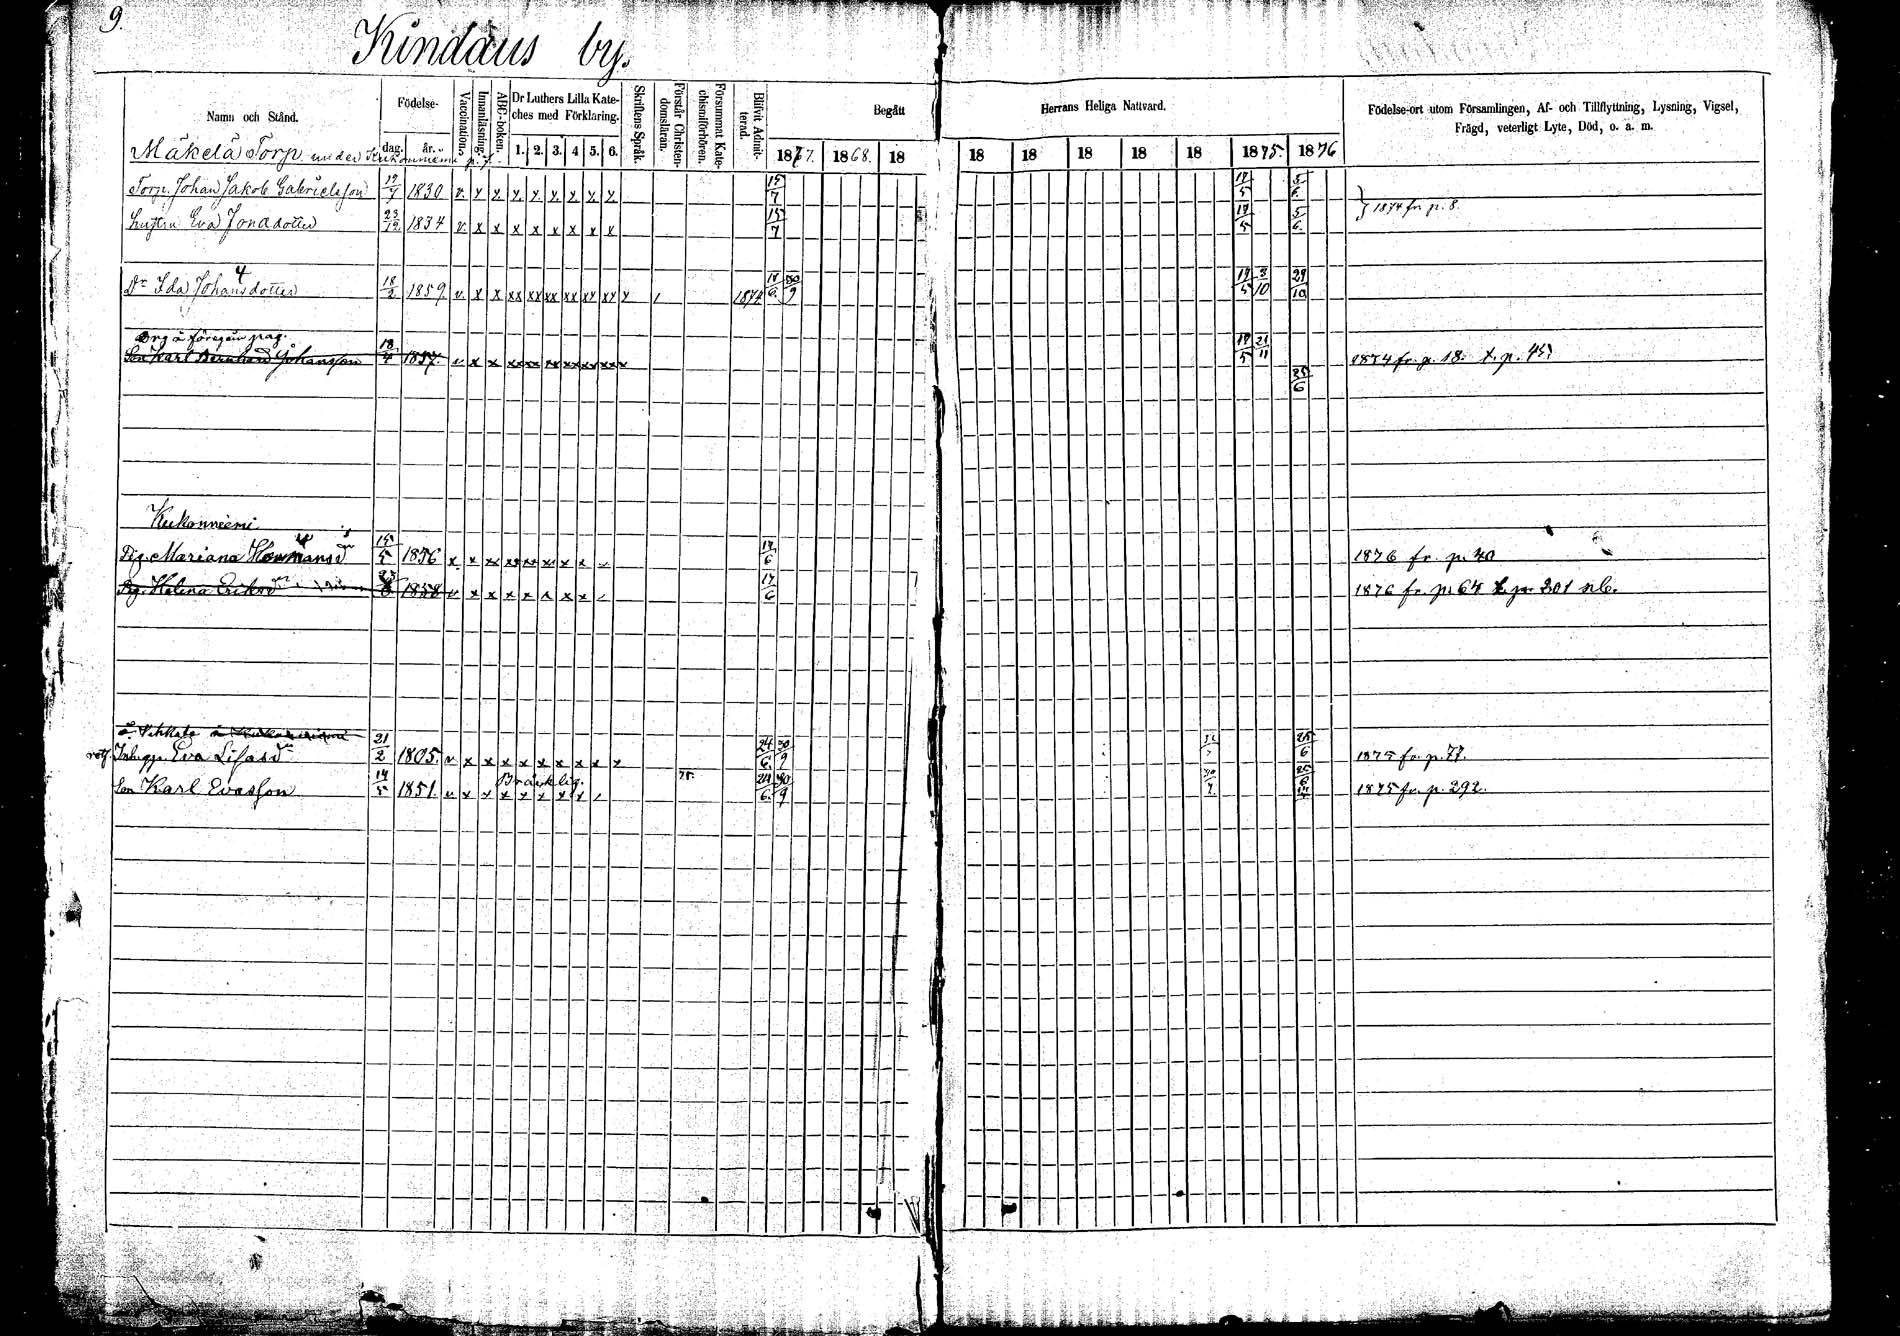 9.
Kindaus by.
Namn och Stånd. Födelse- dag. år. Vaccination. Innanläsning. ABC-boken. Dr Luthers Lilla Kateches med Förklaring. 1. 2. 3. 4 5. 6. Skriftens Språk. Förstår Christendomsläran. Försummat Katechismiförhören. Blifvit Admitterad. Begått Herrans Heliga Nattvard. Födelse-ort utom Församlingen, Af- och Tillflyttning, Lysning, Vigsel, Frägd, veterligt Lyte, Död, o. a. m.
1867. 1868. 18 18 18 18 18 18 1875. 1876
Mäkelä Torp under p. 7.
Torp. Johan Jakob Gabrielsson 1830 v. x x x x x x x x 15/7 17/5 5/6.
Hustru Eva Jonadotter 23/12 1834 v. x x x x x x x x 15/7 17/5 5/6. } 1874 fr. p. 8.
4
Dr Ida Johansdotter 18/2 1859. v. x x xx xx xx xx xx xx x 1874 30/9 3/10 29/10
Drg å föregån pag.
Son Karl Bernhard Johansson 18/4 1857. v x x xx xx xx xx xx xxx 21/11 1874 fr. p. 18. t. p. 45.
25/6
Kukonniemi
Pig. Mariana Hermansdr 15/5 1856 x x xx xx xx xx x x 17/6 1876 fr. p. 40
Pig. Helena Eriksdr 1858 v x x x x x x x 17/6 1876 fr. p. 64 t. p. 201 nb.
å Vehkala å
Inhygg. Eva Lisasdr 21/2 1805. v x x x x x x x x 24/6. 30/9 25/6 1875 fr. p. 77.
Bräcklig.
Son Karl Evasson 14/5 1851. v x x x x x x x 75. 24/6. 30/9 25/6 1875 fr. p. 292.